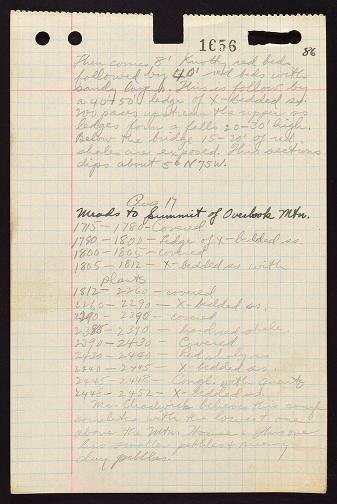 1656
86
Then comes 8' Knotty red beds
followed by 40' red beds with
sandy layers. This is follow by
a 40-50' ledge of X-bedded ss.
200 paces upstream the upper ss
ledges form a falls 20-30' high.
Below the bridge 15-20' of red
shale are exposed. This sections
dips about 5° N 75W.
Aug 17
Meads to Summit of Overlook Mtn.
1715 - 1780 - Covered
1780 - 1800 - Ledge of X-bedded ss.
1800 - 1805 - covered
1805 - 1812 - X-bedded ss with
plants
1812 - 2260 - covered
2260 - 2290 - X-bedded ss.
2290 - covered
2390 - hard red shale.
2390 - 2430 - Covered
2430 - 2440 - Red shaly ss
2440 - 2445 - X-bedded ss.
2445 - 2448 - Congl. with quartz
2448 - 2452 - X-bedded ss.
Mr. Chadwick believes this congl
with the lowest one
above the Mtn. House. This one
has smaller pebbles & many
clay pebbles.